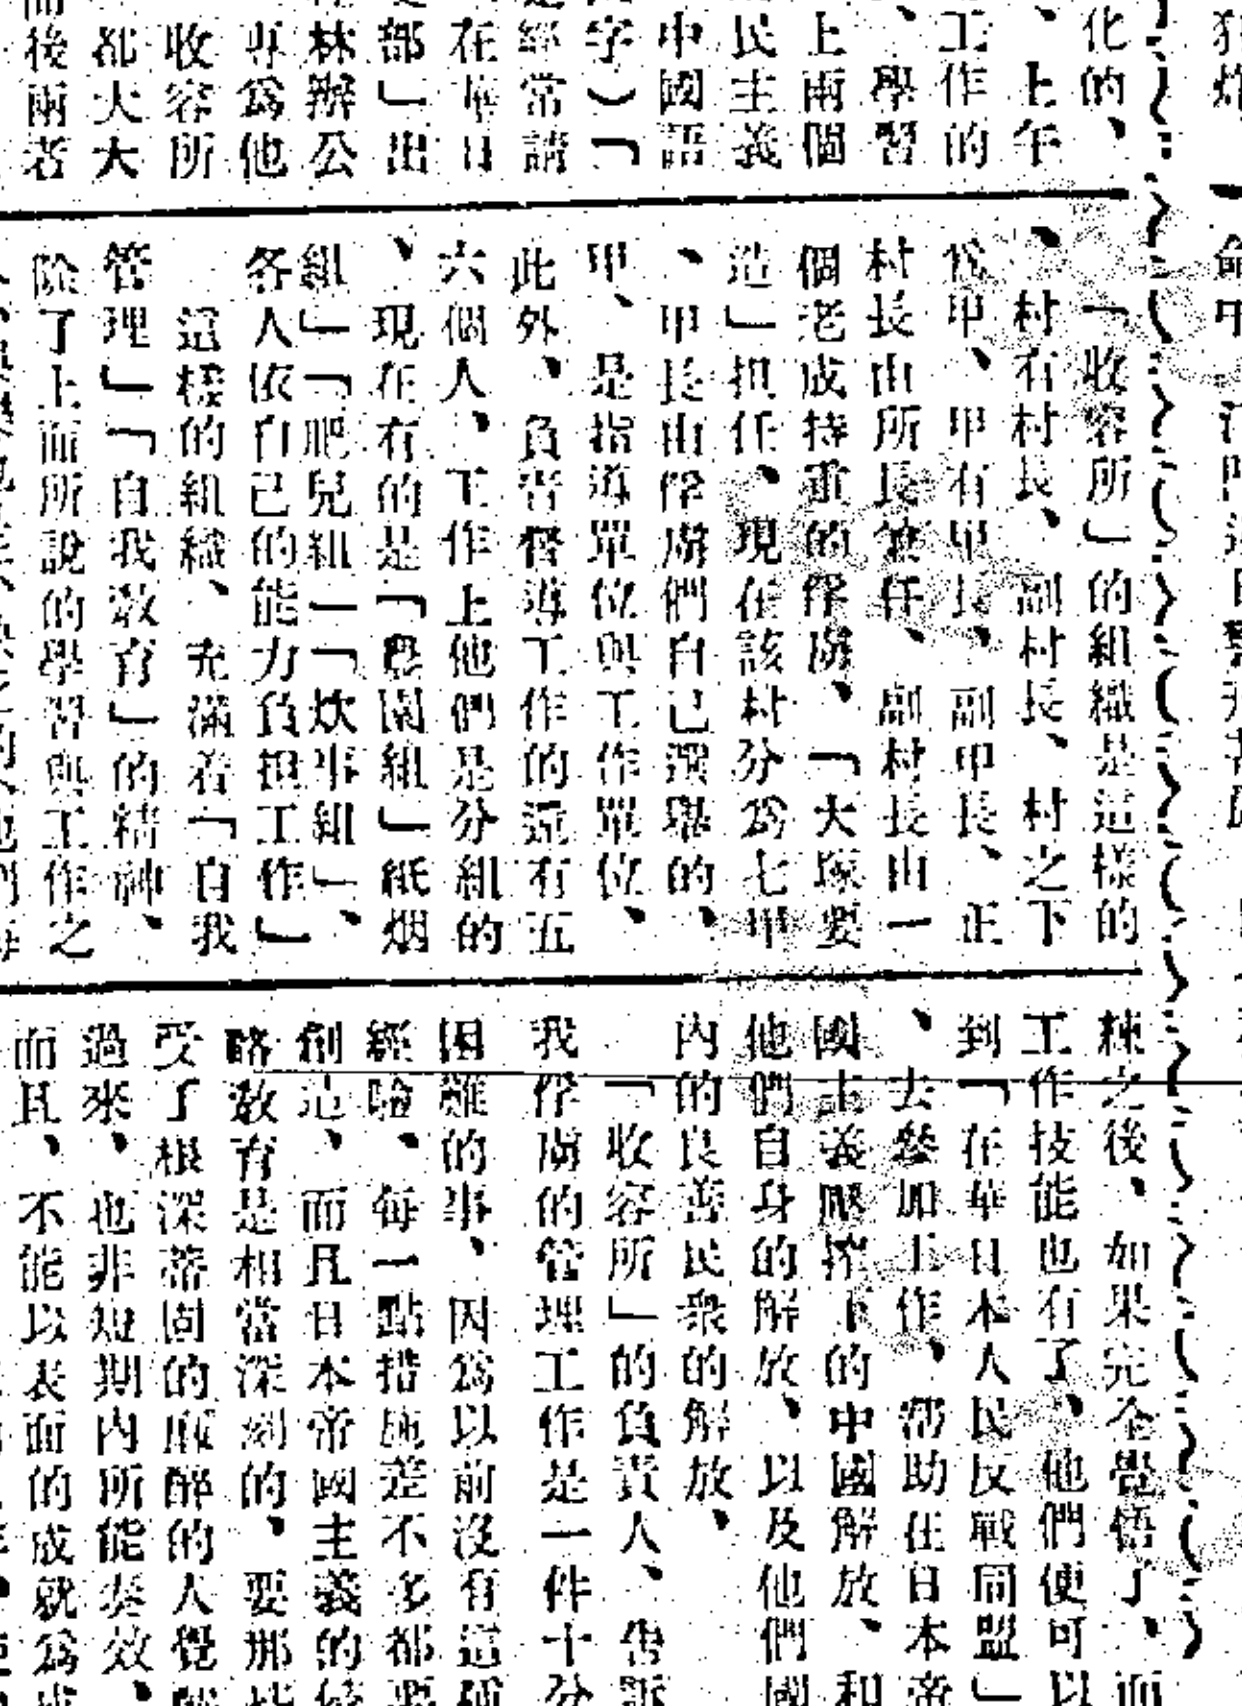 化的、
、上午
工作的
、學習
上兩個
民主義
中國語
字）「
經常請
在華日
部」出
林辦公
專爲他
收容所
都大大
後兩者
「收容所」的組織是這樣的
、村有村長、副村長、村之下
爲甲、甲有甲長、副甲長、正
村長由所長兼任、副村長由一
個老成持重的俘虜、「大塚要
造」担任、現在該村分爲七甲
、甲長由俘虜們自己選舉的、
甲、是指導單位與工作單位、
此外、負責督導工作的還有五
六個人、工作上他們是分組的
、現在有的是「農園組」紙烟
組」「肥兒組」「炊事組」、
各人依自己的能力負担工作」
這樣的組織、充滿着「自我
管理」「自我敎育」的精神、
除了上面所說的學習與工作之
練之後、如果完全覺悟了、而
工作技能也有了、他們便可以
到「在華日本人民反戰同盟」
、去參加工作、帮助在日本帝
國主義壓搾下的中國解放、和
他們自身的解放、以及他們國
內的良善民衆的解放、
「收容所」的負責人、告訴
我俘虜的管理工作是一件十分
困難的事、因爲以前沒有這種
經驗、每一點措施差不多都要
創造、而且日本帝國主義的侵
略敎育是相當深刻的、要那些
受了根深蒂固的麻醉的人覺醒
過來、也非短期內所能奏效、
而且、不能以表面的成就爲成